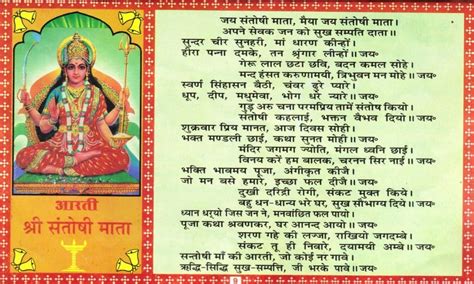 आरती
श्री संतोषी माता
जय संतोषी माता, मैया जय संतोषी माता।
अपने सेवक जन को सुख सम्पति दाता॥
सुन्दर चीर सुनहरी, मां धारण कीन्हों।
हीरा पन्ना दमके, तन श्रृंगार लीन्हों॥ जय॰
गेरू लाल छटा छवि, बदन कमल सोहे।
मन्द हंसत करुणामयी, त्रिभुवन मन मोहे॥ जय॰
स्वर्ण सिंहासन बैठी, चंवर ढुरे प्यारे।
धूप, दीप, मधुमेवा, भोग धरे न्यारे॥ जय॰
गुड़ अरु चना परमप्रिय तामें संतोष कियो।
संतोषी कहलाई, भक्तन वैभव दियो॥ जय॰
शुक्रवार प्रिय मानत, आज दिवस सोही।
भक्त मण्डली छाई, कथा सुनत मोही॥ जय॰
मंदिर जगमग ज्योति, मंगल ध्वनि छाई।
विनय करें हम बालक, चरनन सिर नाई॥ जय॰
भक्ति भावमय पूजा, अंगीकृत कीजै।
जो मन बसे हमारे, इच्छा फल दीजै॥ जय॰
दुखी दरिद्री रोगी, संकट मुक्त किये।
बहु धन-धान्य भरे घर, सुख सौभाग्य दिये॥ जय॰
ध्यान धर्‌यो जिस जन ने, मनवांछित फल पायो।
पूजा कथा श्रवणकर, घर आनन्द आयो॥ जय॰
शरण गहे की लज्जा, राखियो जगदम्बे।
संकट तू ही निवारे, दयामयी अम्बे॥ जय॰
सन्तोषी माँ की आरती, जो कोई नर गावे।
ऋद्धि-सिद्धि सुख-सम्पत्ति, जी भरके पावे॥ जय॰